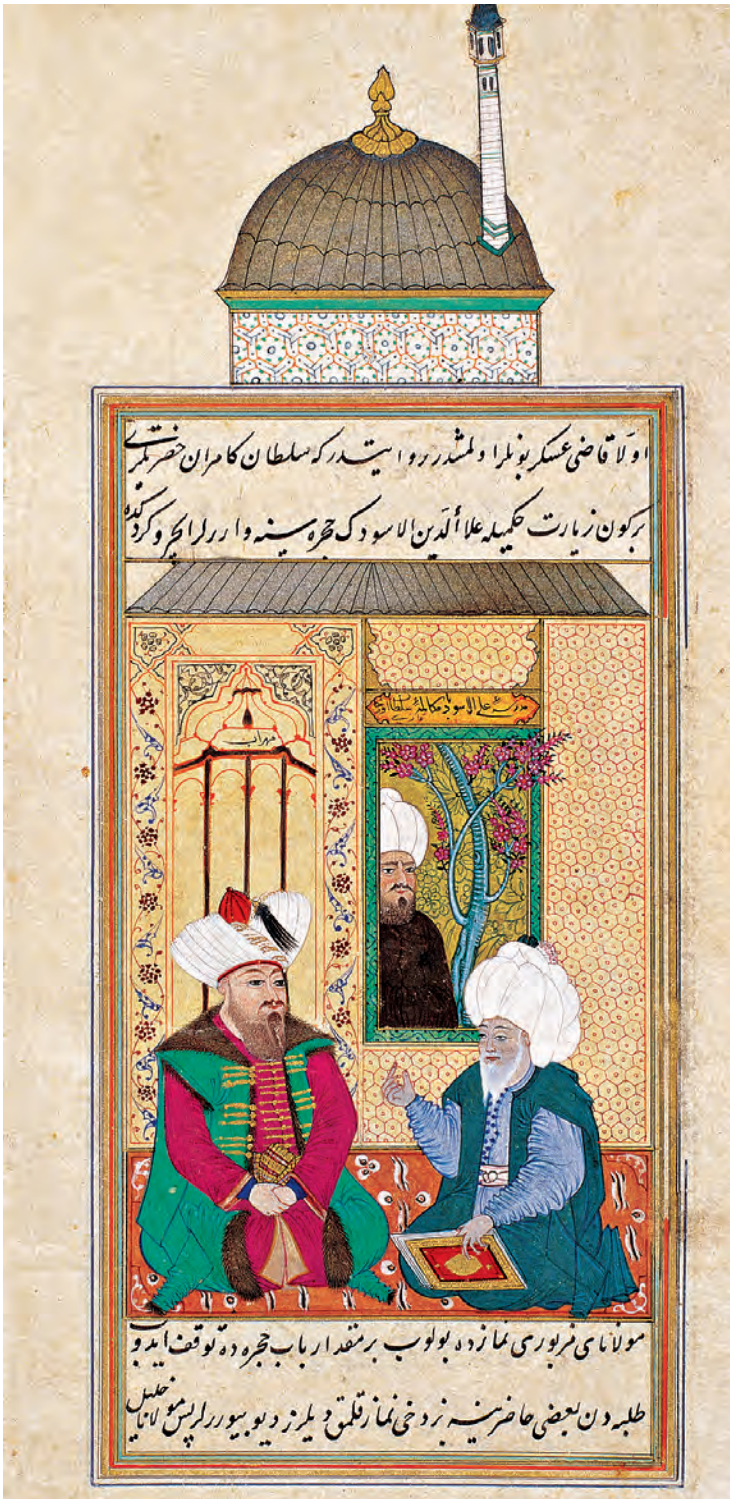 اولا قاضی عسکر بونلر اولمشدر روایتدر که سلطان کامران حضرتلری
برکون زیارت حکمیله علاألدین الاسودک حجره سینه واررلر ایچرو کردکده
علی الاسود مکالمهٔ سلطان
مهراب
مولانای مزبوری نمازده بولوب بر مقدار باب حجره ده توقف ایدوب
طلبه دن بعضی حاضرینه بزدخی نماز قلمق دیلرز دیو بیوررلر پس مولانا خلیل